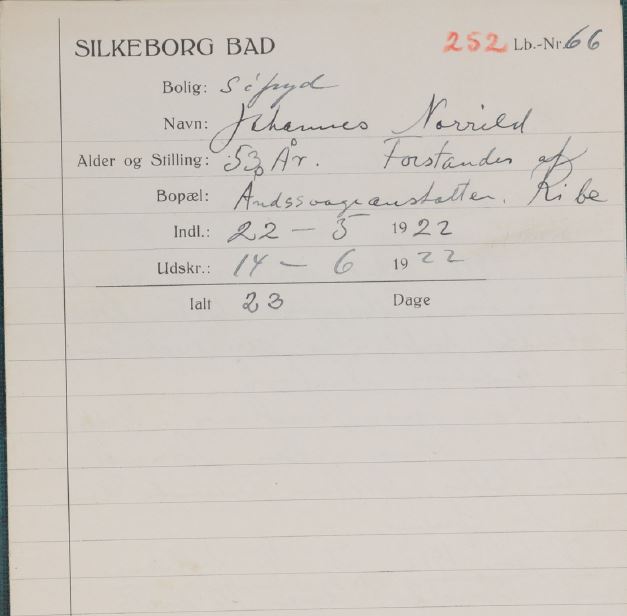 SILKEBORG BAD 252 Lb.-Nr. 66
Bolig: Söfryd
Navn: Johannes Norrild
Alder og Stilling: 53 År. Forstander af
Bopæl: Åndssvageanstalten. Ribe
Indl.: 22 - 5 1922
Udskr.: 14 - 6 1922
Ialt 23 Dage